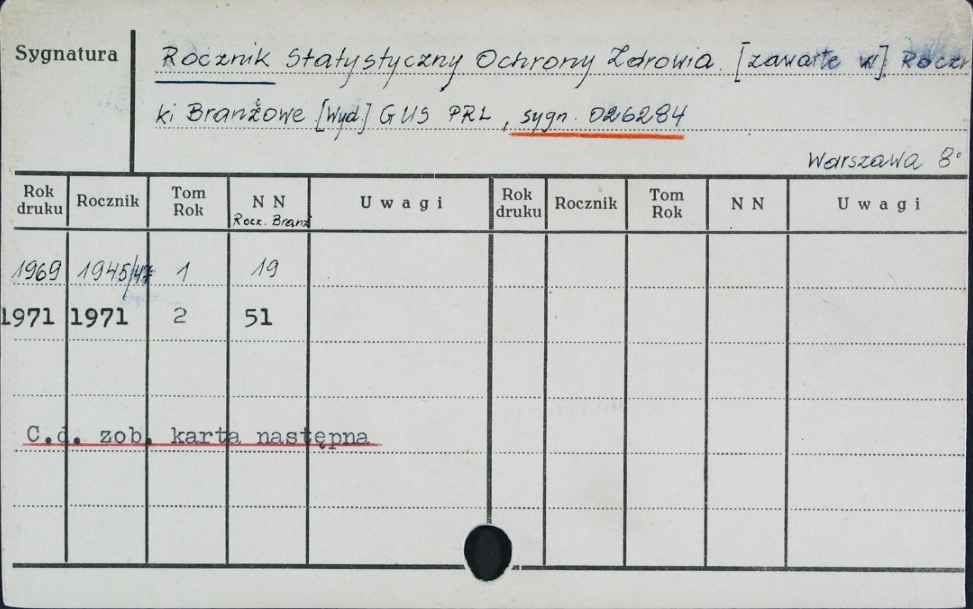 Sygnatura
Rocznik Statystyczny Ochrony Zdrowia [zawarte w] Roczni
ki Branżowe [Wyd.] GUS PRL, sygn. 026284
Warszawa 8°
Rok druku Rocznik Tom Rok N N Uwagi Rok druku Rocznik Tom Rok N N Uwagi
Rocz. Branż
1969 1945/47 1 19
1971 1971 2 51
C.d. zob. karta następna